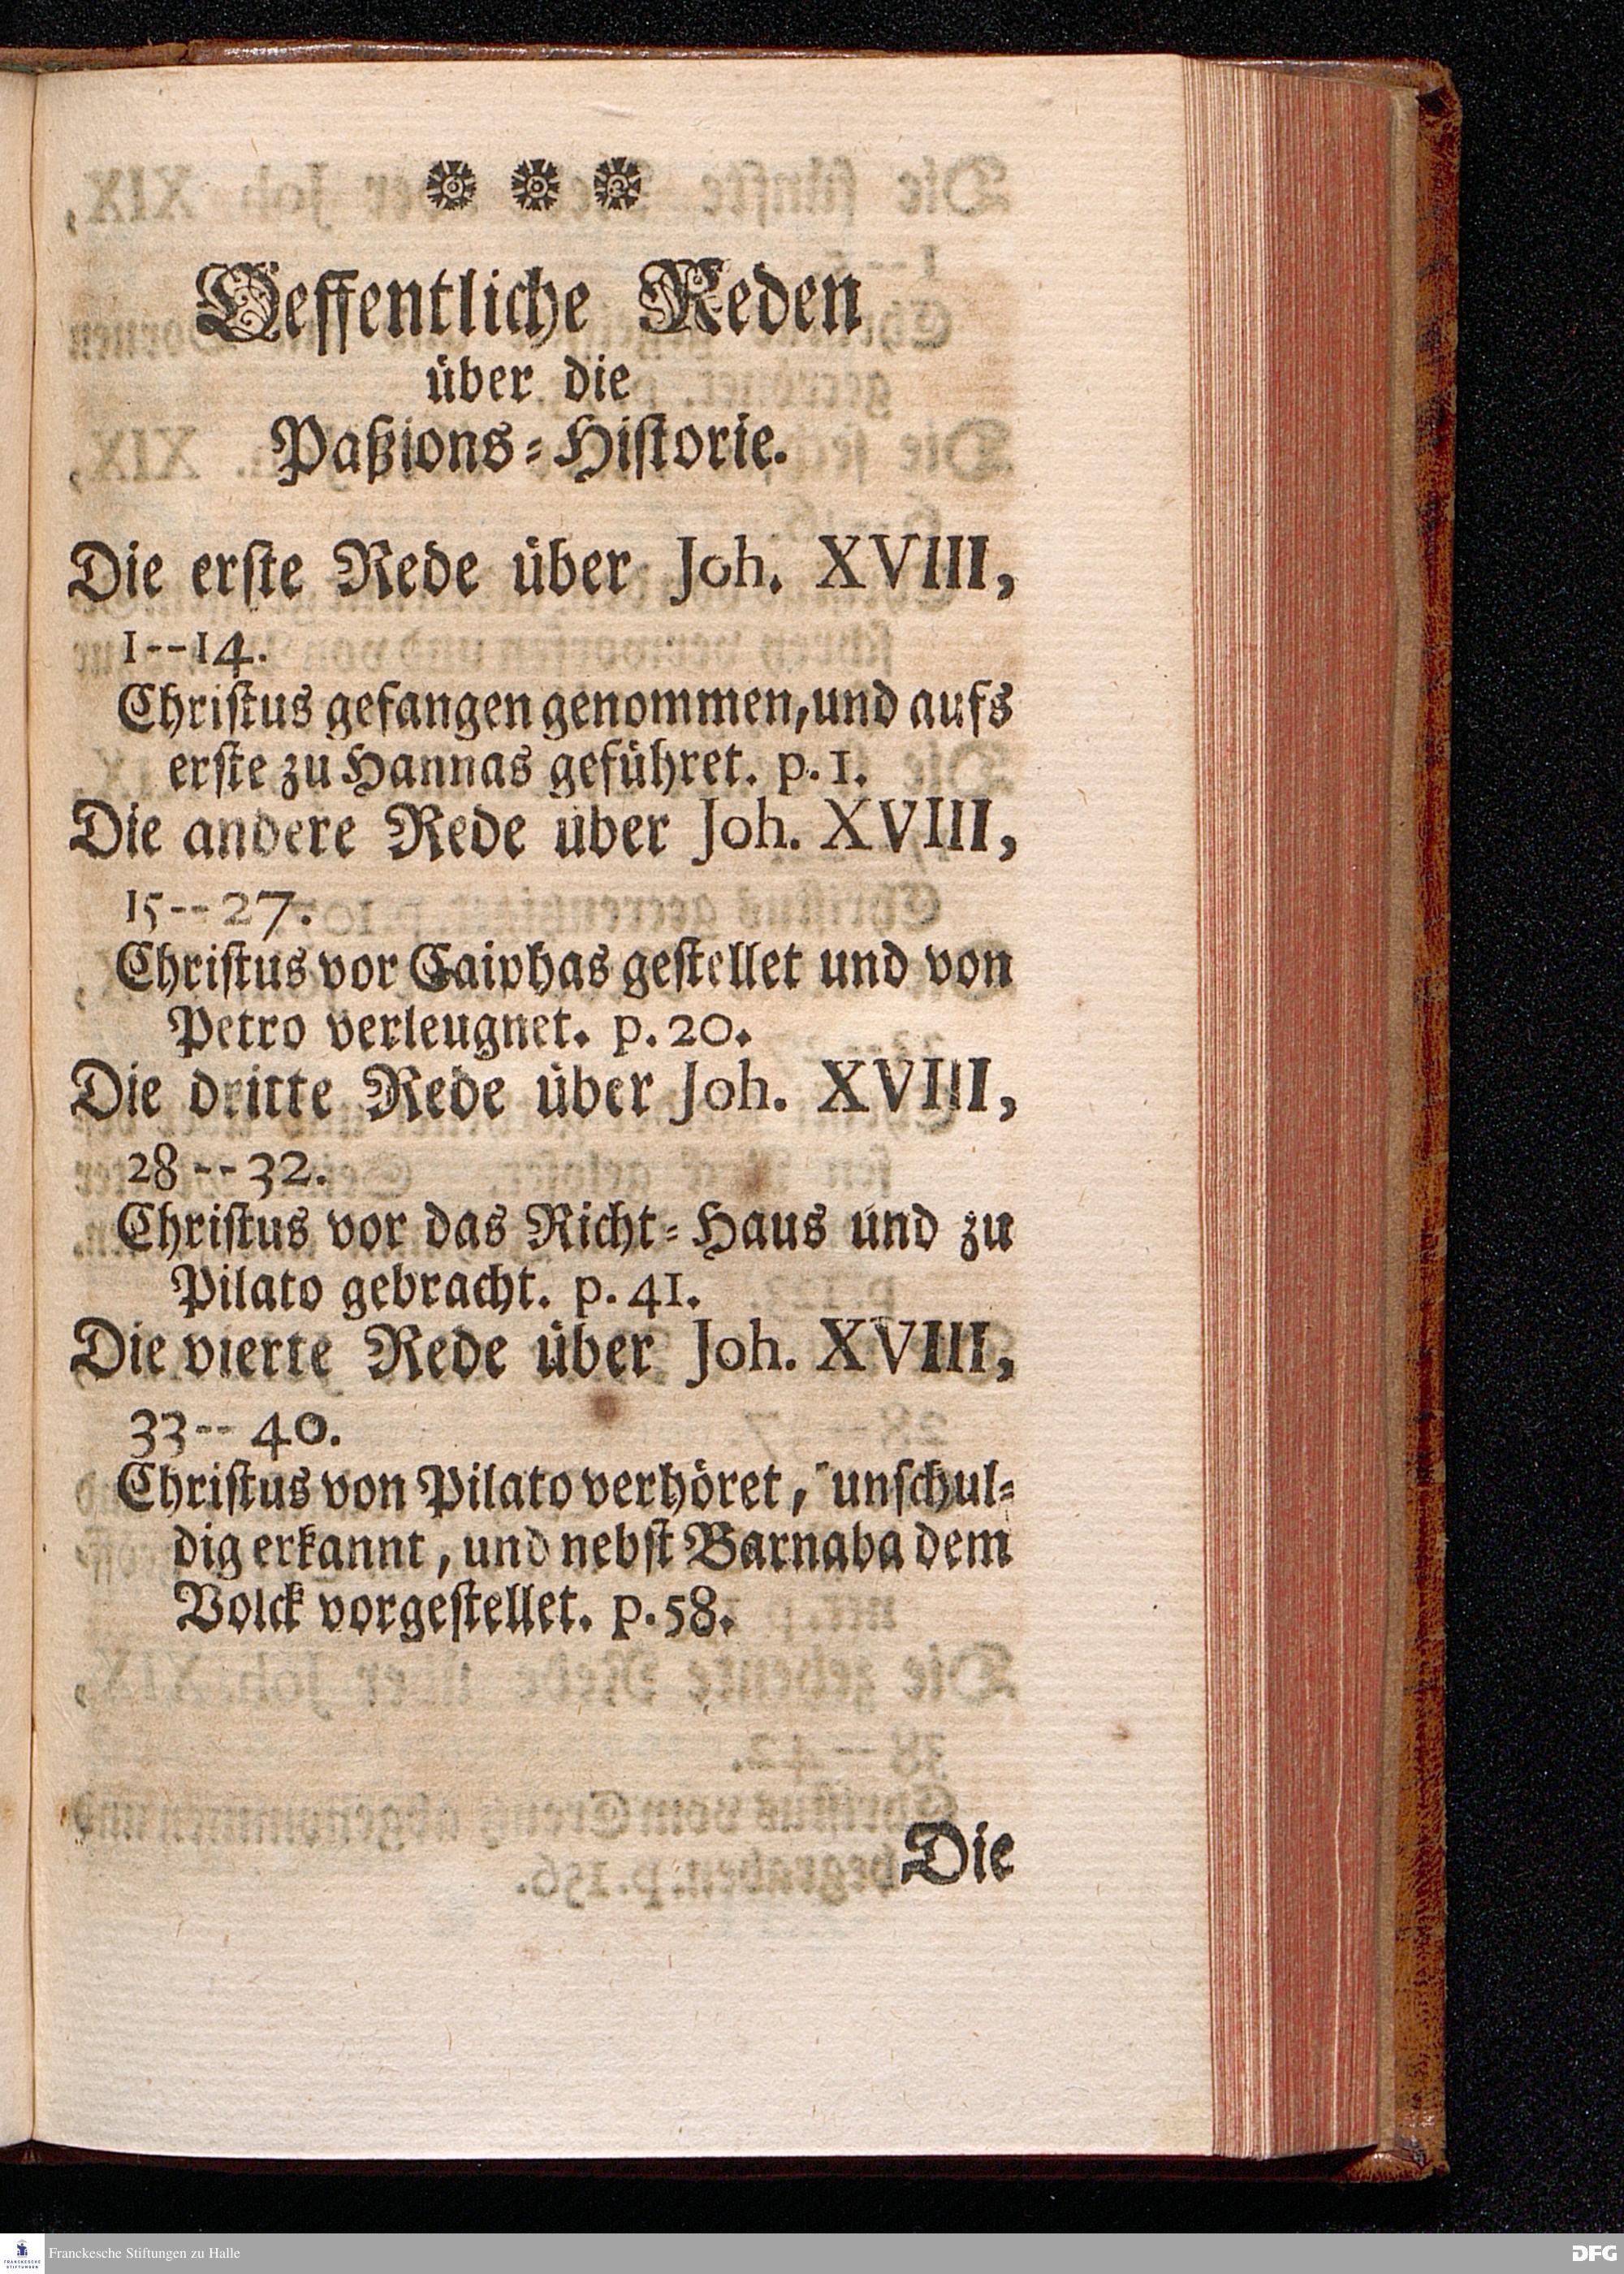 Oeffentliche Reden
über die
Paßions-Historie.
Die erste Rede über Joh. XVIII,
1--14.
Christus gefangen genommen, und aufs
erste zu Hannas geführet. p. 1.
Die andere Rede über Joh. XVIII,
15--27.
Christus vor Caiphas gestellet und von
Petro verleugnet. p. 20.
Die dritte Rede über Joh. XVIII,
28--32.
Christus vor das Richt-Haus und zu
Pilato gebracht. p. 41.
Die vierte Rede über Joh. XVIII,
33--40.
Christus von Pilato verhöret, unschul-
dig erkannt, und nebst Barnaba dem
Volck vorgestellet. p. 58.
Die
FRANCKESCHE
STIFTUNGEN
Franckesche Stiftungen zu Halle
DFG